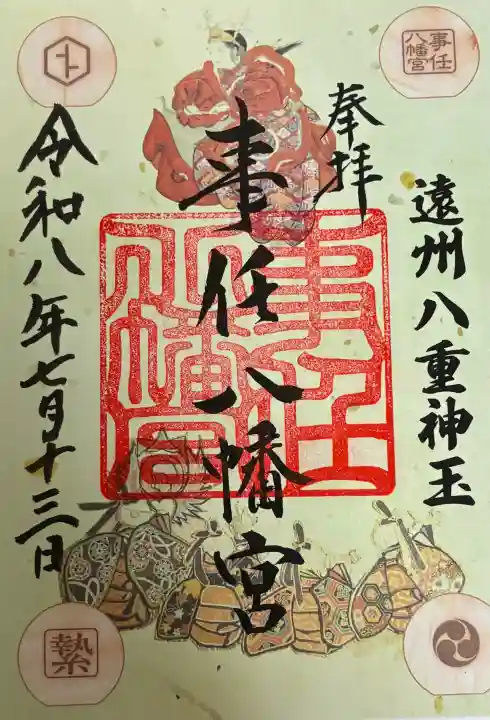 遠州八重神玉
奉拝
事任八幡宮
令和八年七月十三日
事任
八幡宮
事任
八幡宮